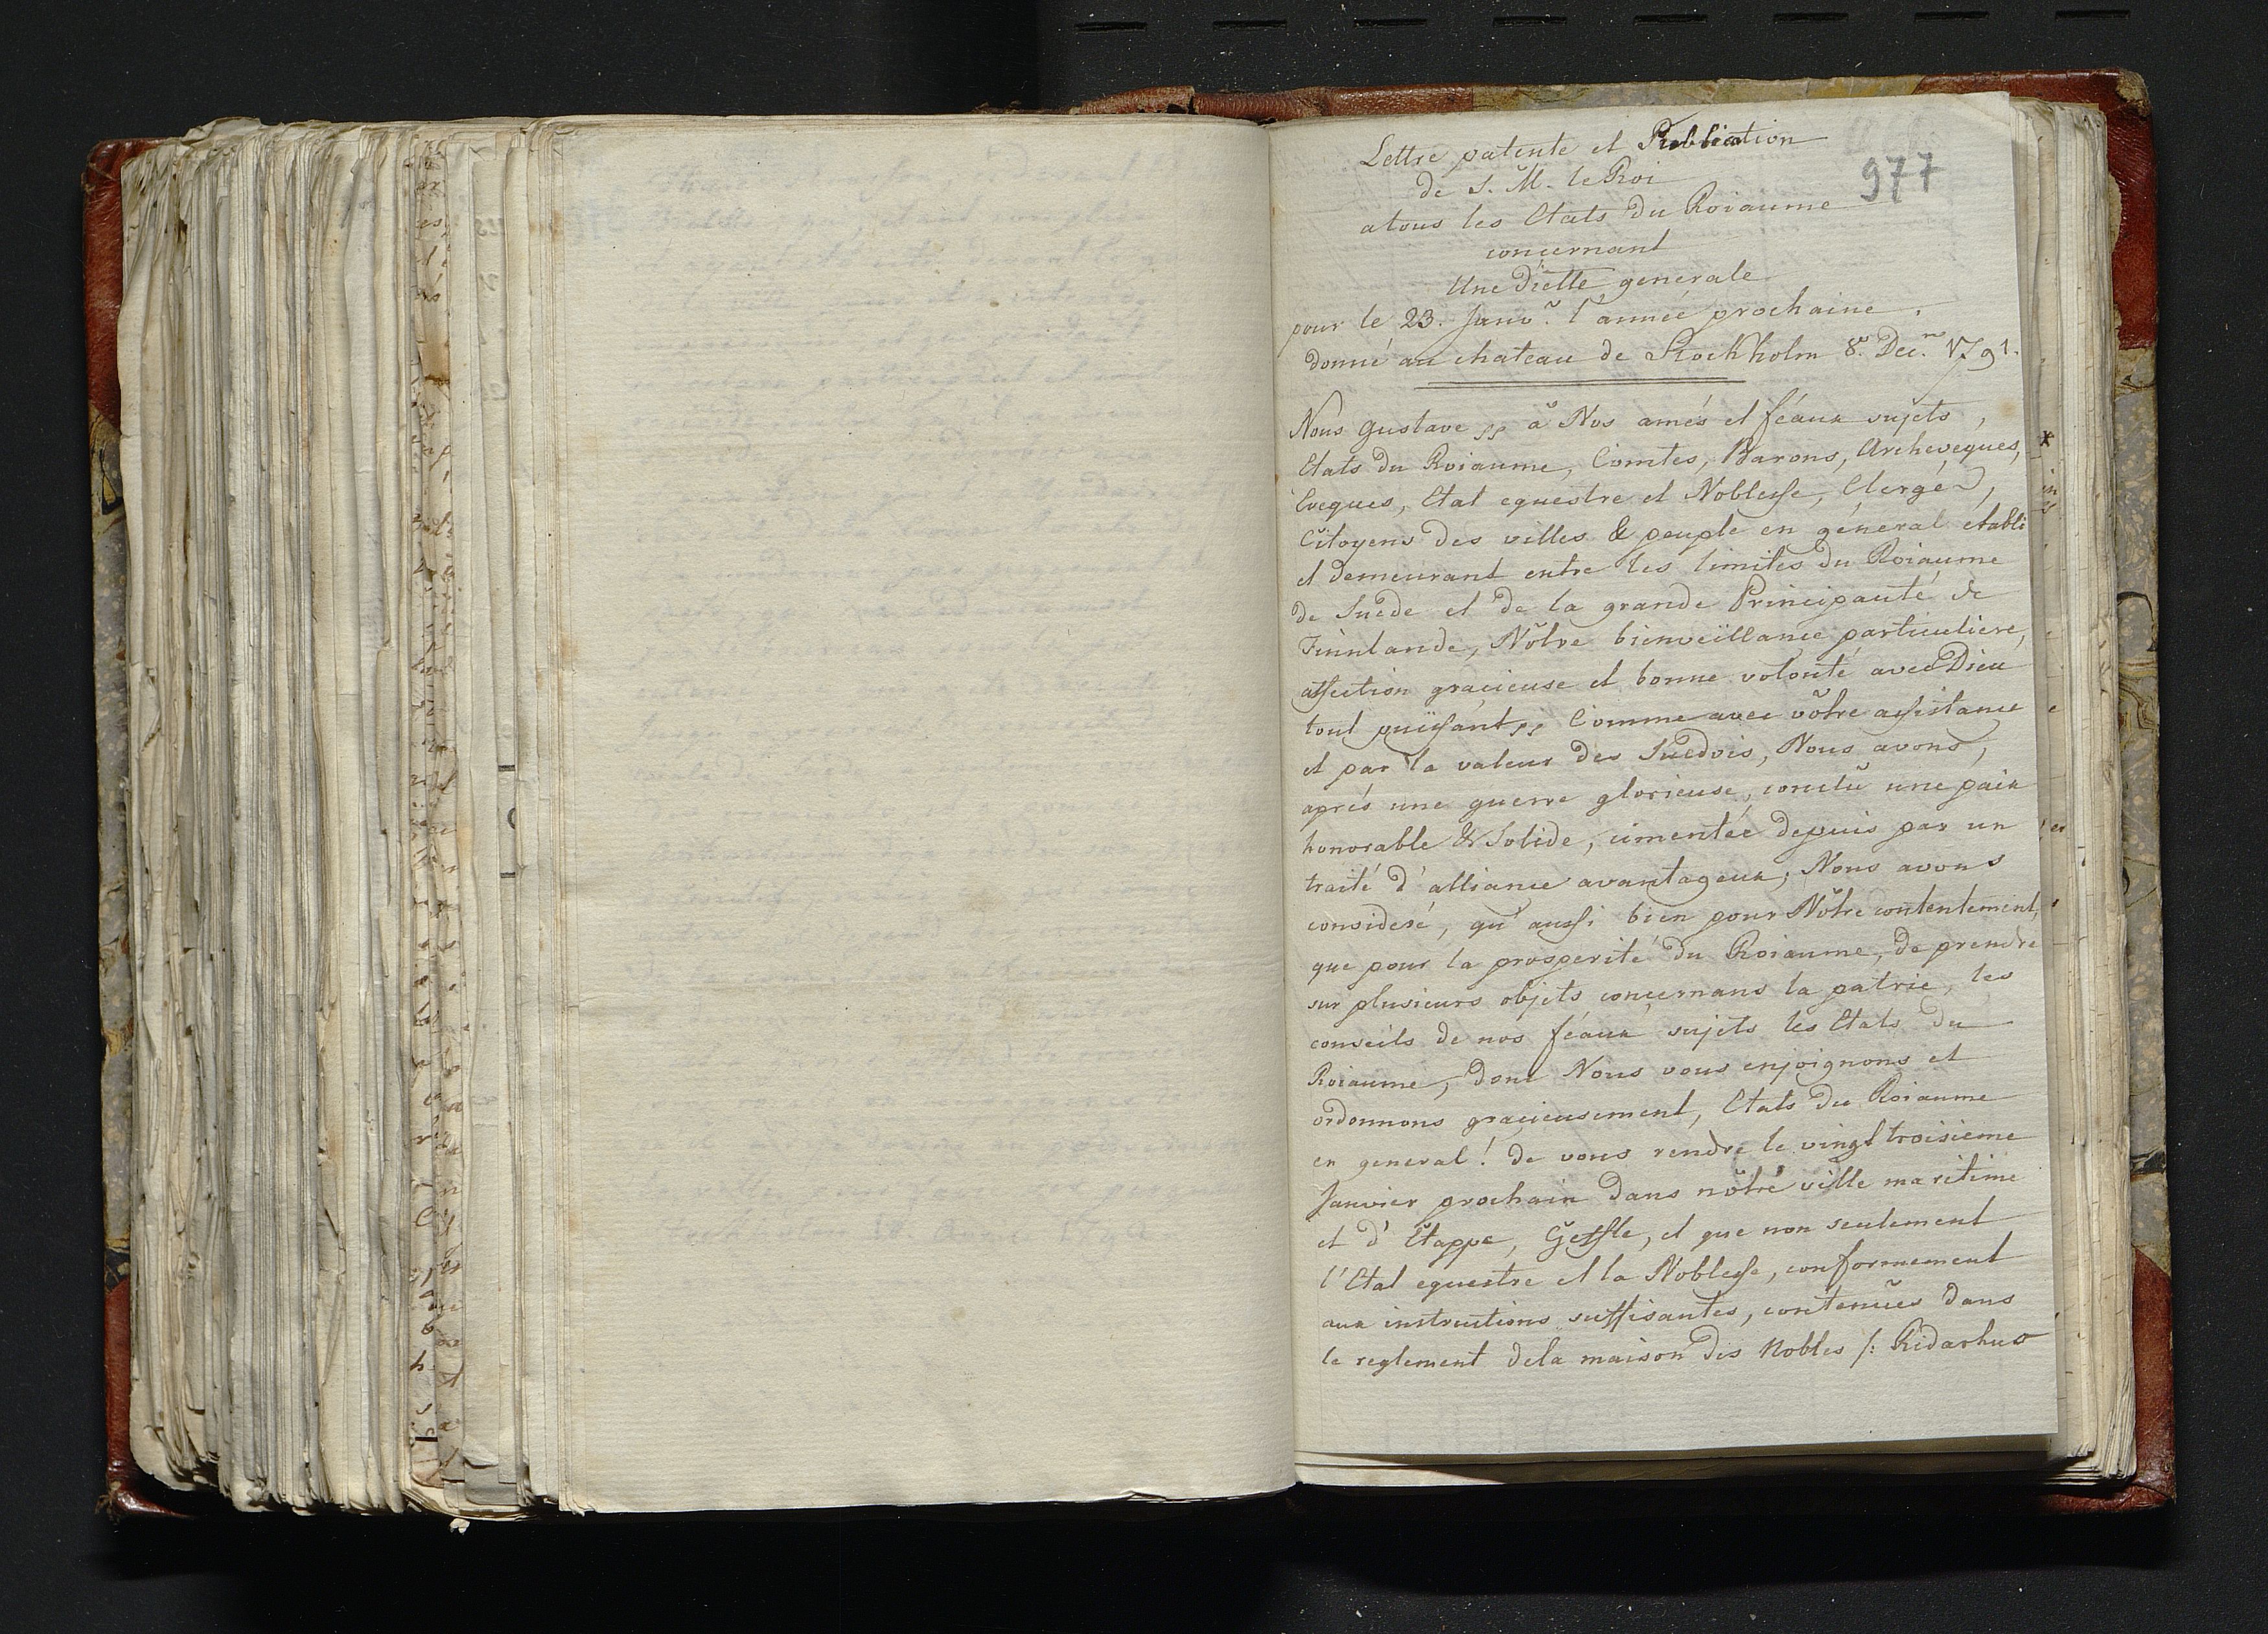 Lettre patente et Publication
de S. M. le Roi
977
atous les Etats du Roiaume
concernant
Une Diette generale
pour le 23. Janvr. l'année prochaine.
donné au chateau de Stockholm 8. Dec. 1791.
Nous Gustave à Nos amés et féaux sujets,
Etats du Roiaume, Comtes, Barons, Archeveques,
Eveques, Etat equestre et Noblesse, Clergé,
Citoyens des villes & peuple en géneral établi
et demeurant entre les limites du Roiaume
de Suede et de la grande Principauté de
Finnlande, Nôtre bienveïllance particuliere,
affection gracieuse et bonne volonté avec Dieu
tout puissant Comme avec vôtre assistance
et par la valeur des Suedois, Nous avons,
aprés une guerre glorieuse, conclû une paix
honorable & Solide, cimentée depuis par un
traité d'alliance avantageux; Nous avons
consideré, qu'aussi bien pour Nôtre contentement,
que pour la prosperité du Roiaume, de prendre
sur plusieurs objets concernans la patrie, les
conseils de nos féaux sujets les Etats du
Roiaume, donc Nous vous enjoignons et
ordonnons gracieusement, Etats du Roiaume
en general! de vous rendre le vingt troisieme
Janvier prochain dans nôtre ville maritime
et d'Etappe, Geffle, et que non seulement
l'Etat equestre et la Noblesse, conformement
aux instructions suffisantes, contenûes dans
le reglement dela maison des Nobles /: Ridarhus